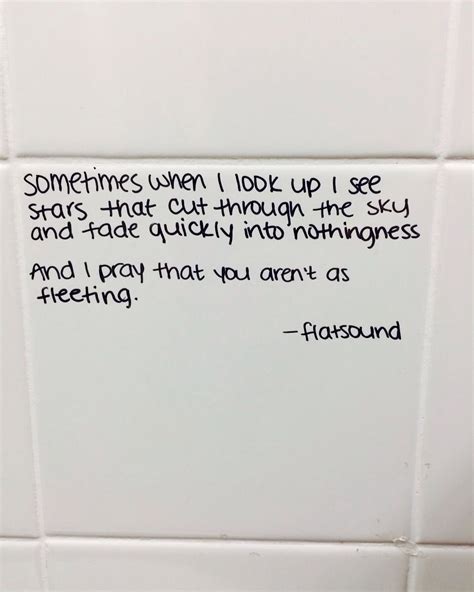 sometimes when I look up I see
stars that cut through the sky
and fade quickly into nothingness
And I pray that you aren't as
fleeting.
-flatsound